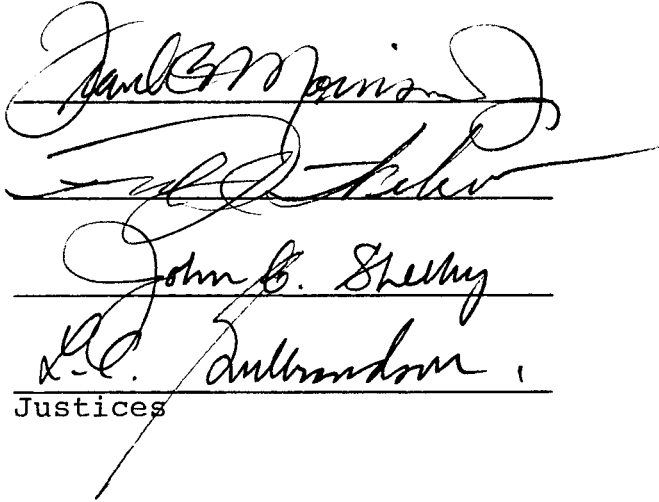 Frank B Morrison Jr
Fred J. Weber
John C. Sheehy
L.C. Gulbrandson
Justices